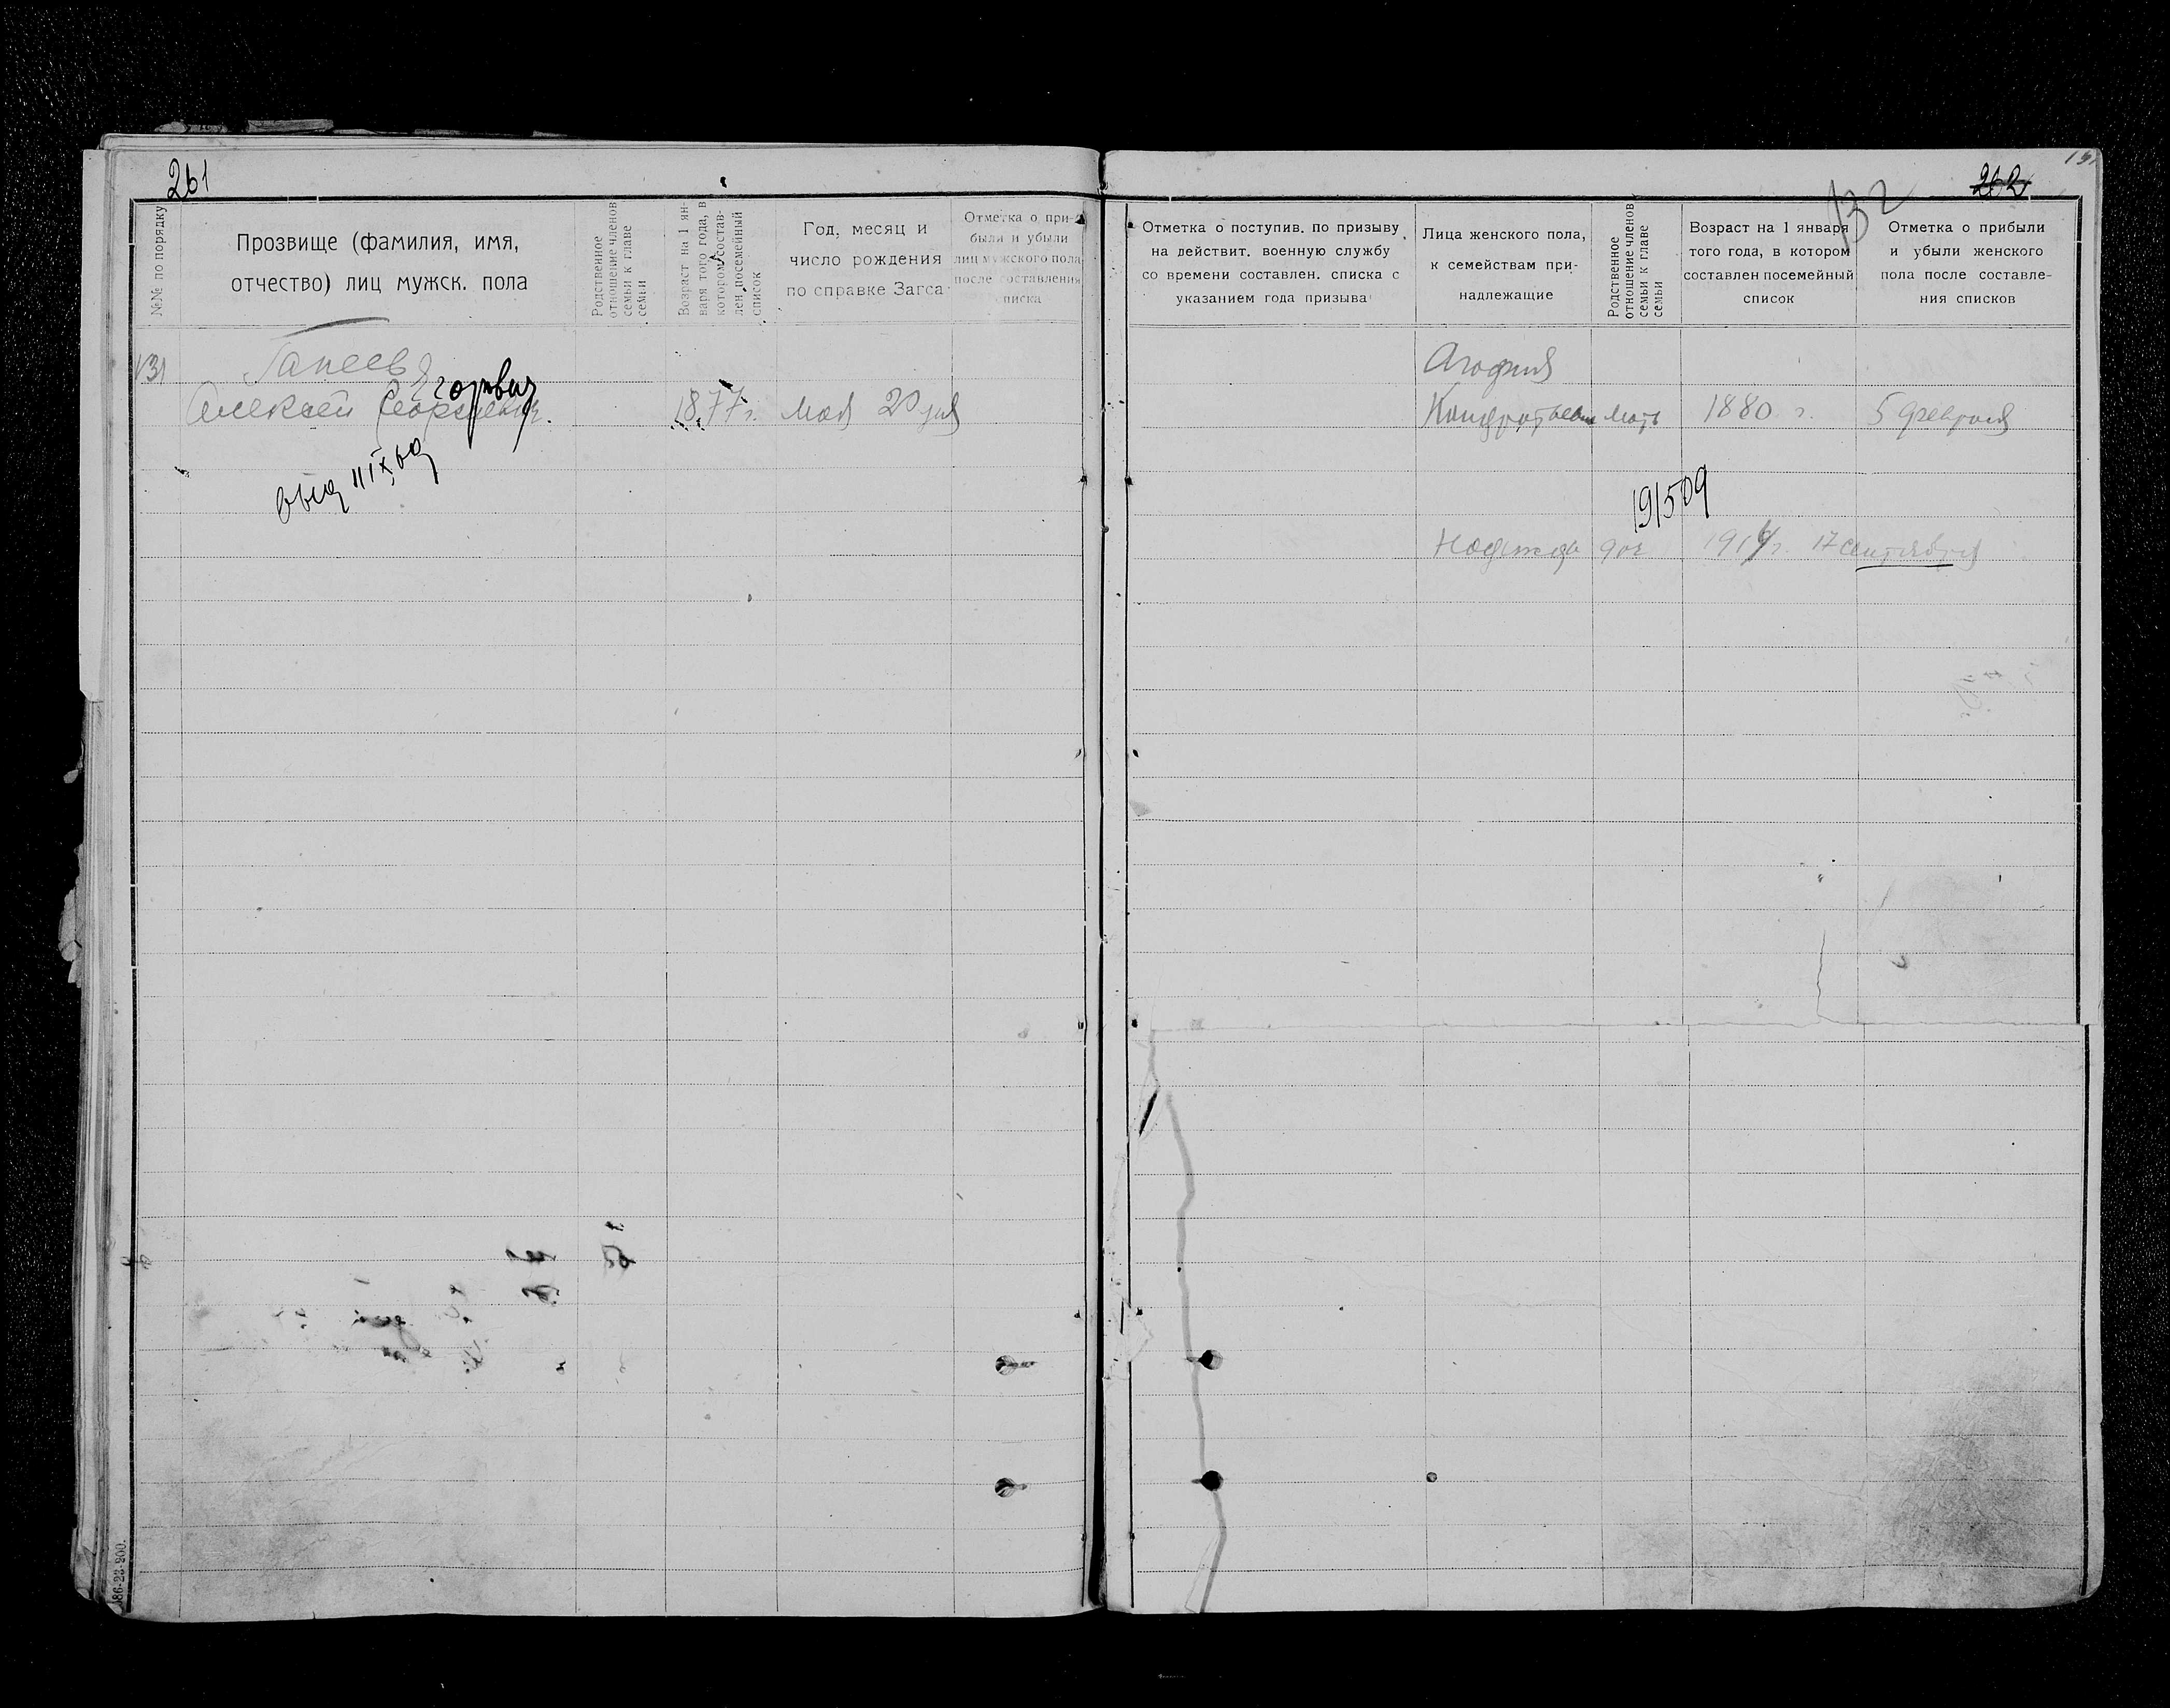 261
№№ по порядку
Прозвище (фамилия, имя,
отчество) лиц мужск. пола
Родственное
отношение членов
семьи к главе
семьи
Возраст на 1 ян-
варя того года, в
котором состав-
лен посемейный
список
Год, месяц и
число рождения
по справке Загса
Отметка о при-
были и убыли
лиц мужского пола
после составления
списка
131
Гапеев
Егорович
Алексей Георгиевич. 1877 г. мая 20 дня
186-23-200.
132
262
Отметка о поступив. по призыву
на действит. военную службу
со времени составлен. списка с
указанием года призыва
Лица женского пола,
к семействам при-
надлежащие
Родственное
отношение членов
семьи к главе
семьи
Возраст на 1 января
того года, в котором
составлен посемейный
список
Отметка о прибыли
и убыли женского
пола после составле-
ния списков
Агофия
Кондратьевна мать 1880 г. 5 февраля
191509
Надежда доч 1914 г. 17 сентября